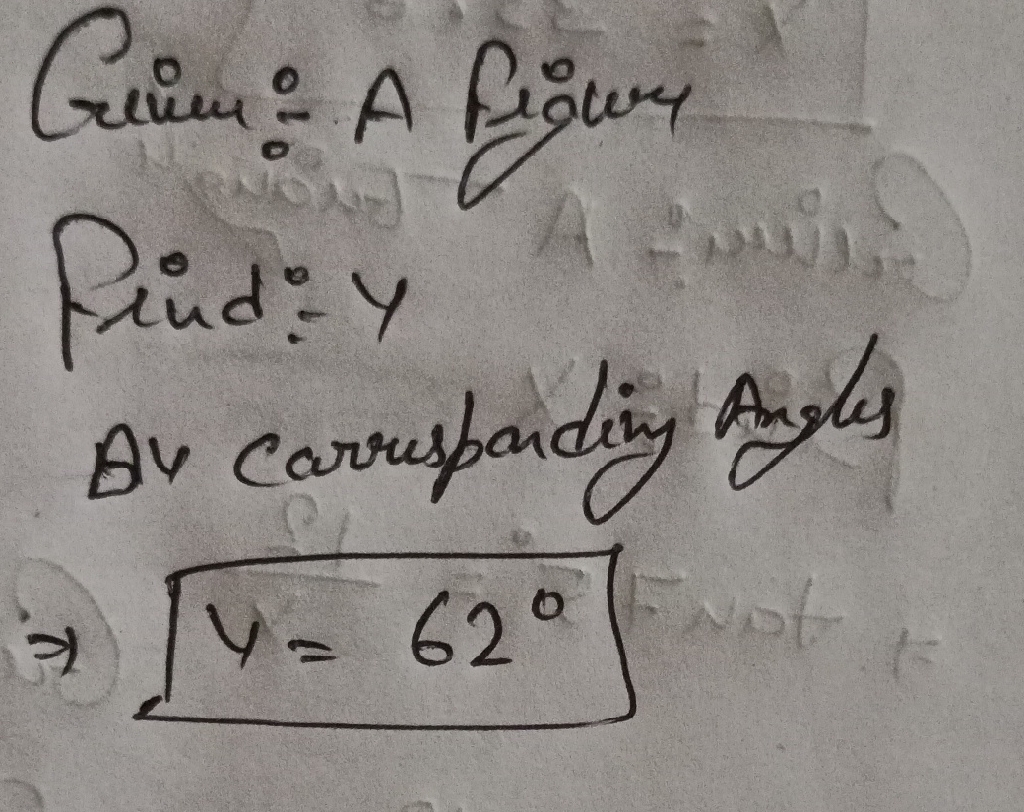 Given : A figure
Find : y
By corresponding Angles
⇒ y = 62°